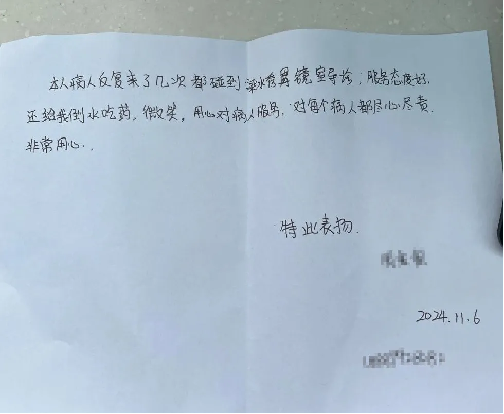 本人病人反复来了几次都碰到胃镜室导诊,服务态度好,
还给我倒水吃药,微笑,用心对病人服务,对每个病人都尽心尽责,
非常用心.
特此表扬.
2024.11.6